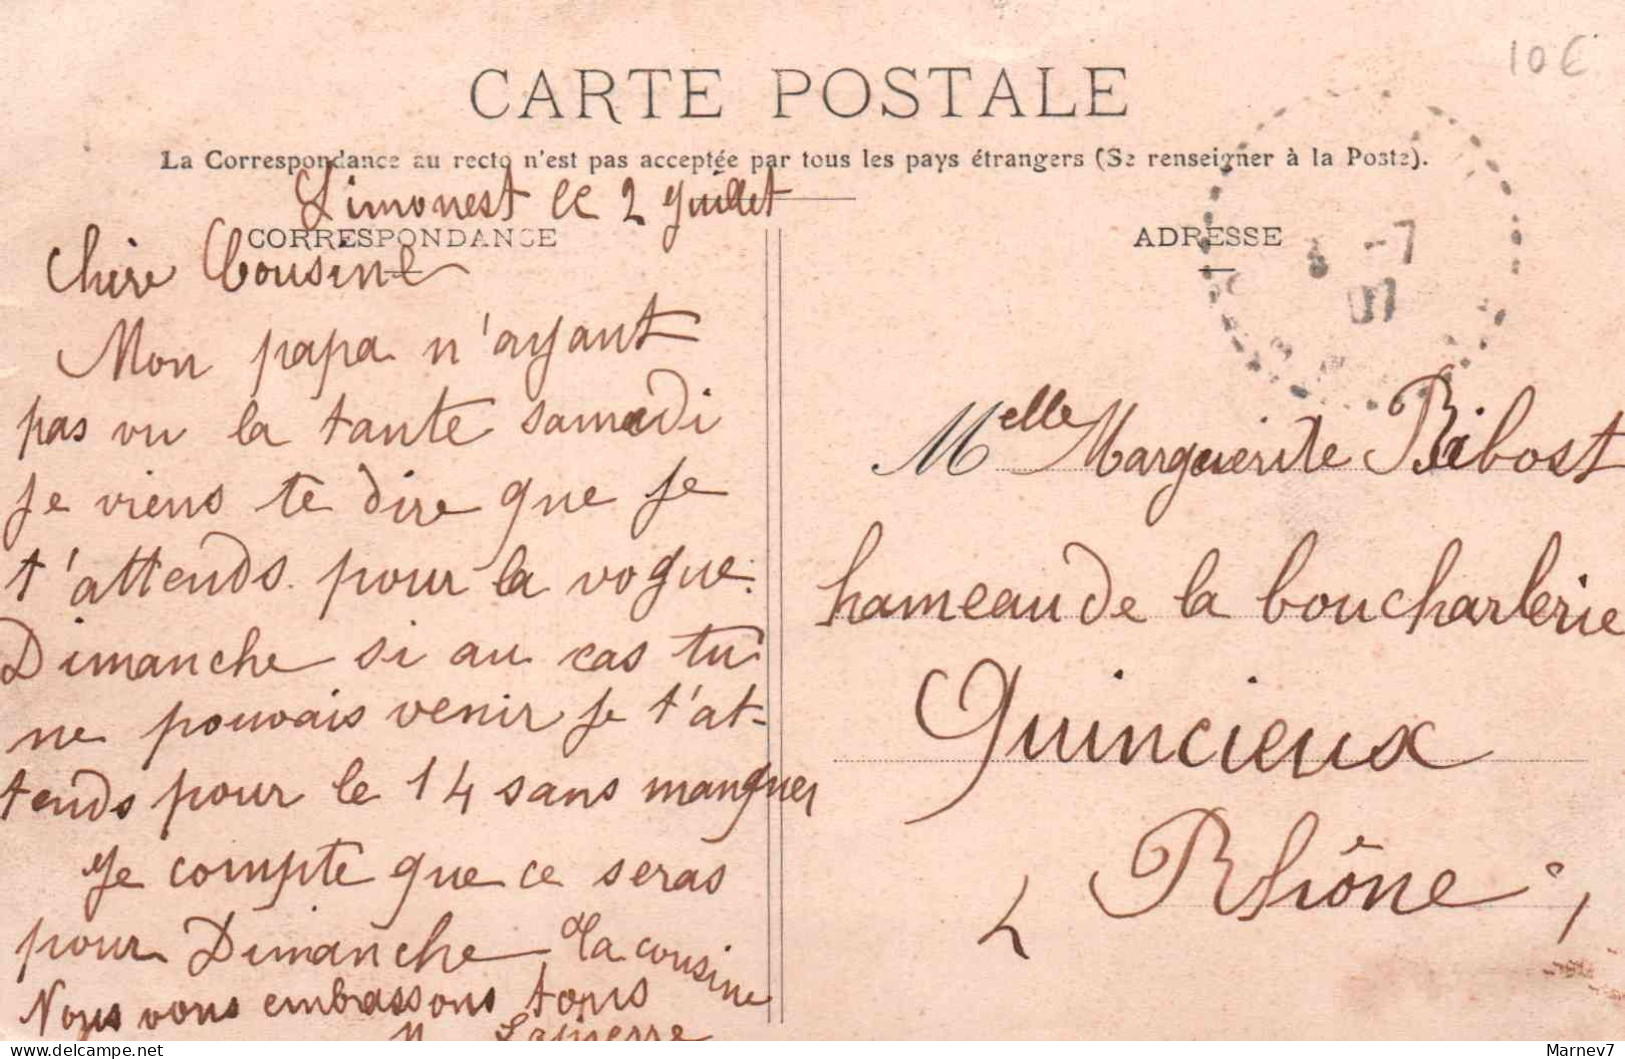 10 €
CARTE POSTALE
La Correspondance au recto n'est pas acceptée par tous les pays étrangers (Se renseigner à la Poste).
Limonest le 2 Juillet
CORRESPONDANCE
Chère Cousine
Mon papa n'ayant
pas vu la tante samedi
je viens te dire que je
t'attends pour la vogue.
Dimanche si au cas tu
ne pouvais venir je t'at-
tends pour le 14 sans manquer
Je compte que ce seras
pour Dimanche Ta cousine
Nous vous embrassons tous
Lapierre
ADRESSE
-7
07
Melle Marguerite Ribost
hameau de la boucharlerie
Quincieux
Rhône
Marnev7